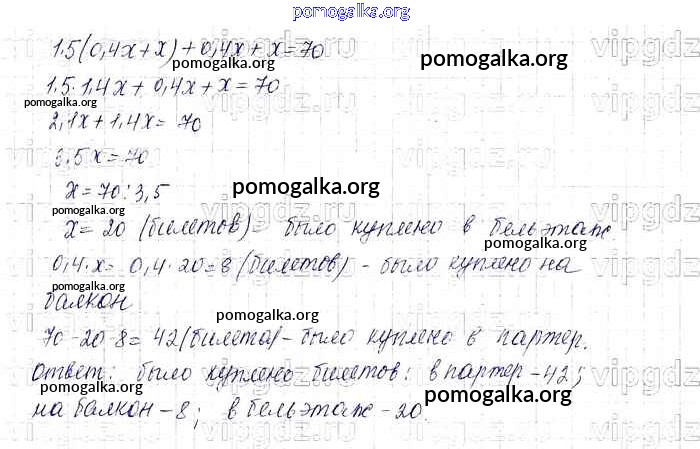 pomogalka.org
1.5(0,4x+x)+0,4x+x=70
pomogalka.org
pomogalka.org
1.5·1.4x+0,4x+x=70
pomogalka.org
2,1x+1.4x=70
3.5x=70
x=70:3,5
pomogalka.org
x=20 (билетов)- было куплено в бельэтаж
pomogalka.org
pomogalka.org
0,4·x=0,4·20=8 (билетов) - было куплено на
балкон
pomogalka.org
70-20-8=42(билета)-было куплено в партер.
pomogalka.org
Ответ: было куплено билетов: в партер-42;
pomogalka.org
pomogalka.org
на балкон-8; в бельэтаж-20.
vipgdz.ru